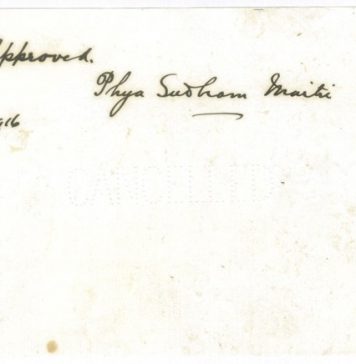 Approved.
Phya Sudham Maitri
916
CANCELLED